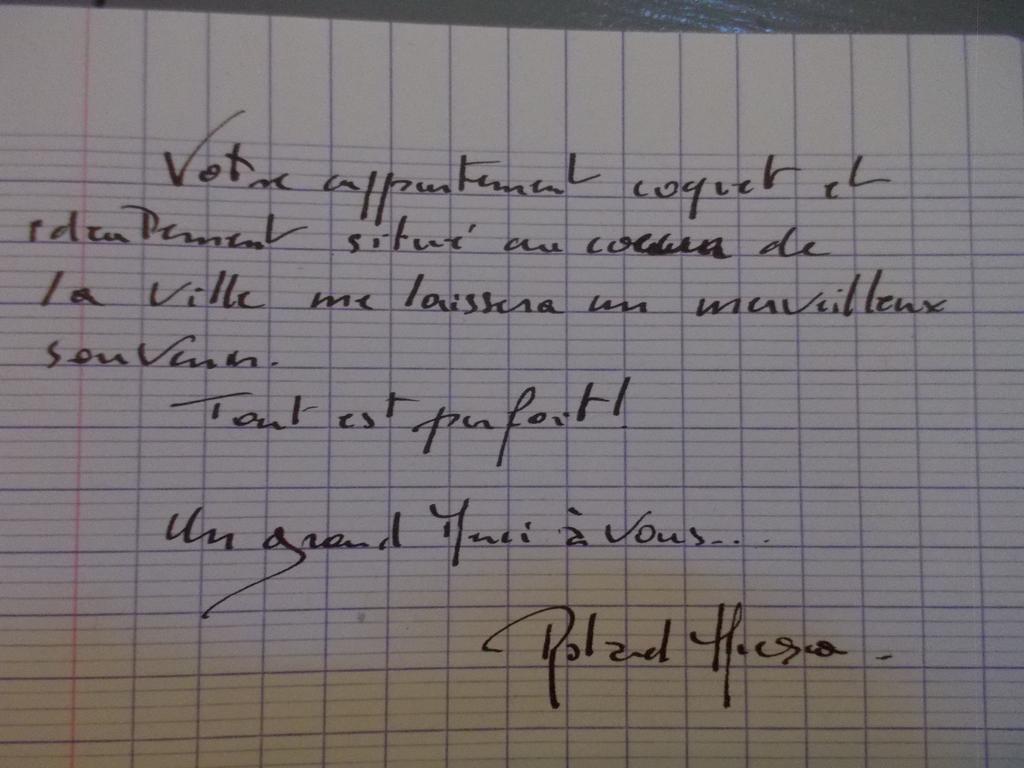 Votre appartement coquet et
idéalement situé au coeur de
la ville me laissera un merveilleux
souvenir.
Tout est parfait!
Un grand Merci à vous...
Roland